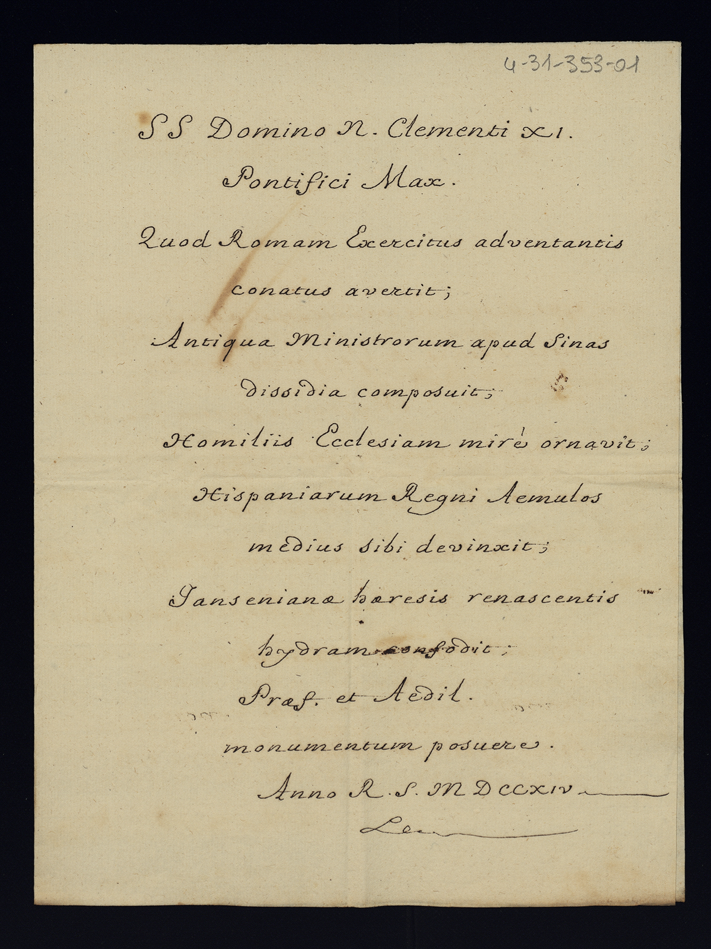 4-31-353-01
SS Domino N. Clementi XI.
Pontifici Max.
Quod Romam Exercitus adventantis
conatus avertit;
Antiqua Ministrorum apud Sinas
dissidia composuit;
Homiliis Ecclesiam mirè ornavit;
Hispaniarum Regni Aemulos
medius sibi devinxit;
Jansenianæ hæresis renascentis
hydram confodit;
Præf. et Aedil.
monumentum posuere.
Anno R. S. MDCCXIV